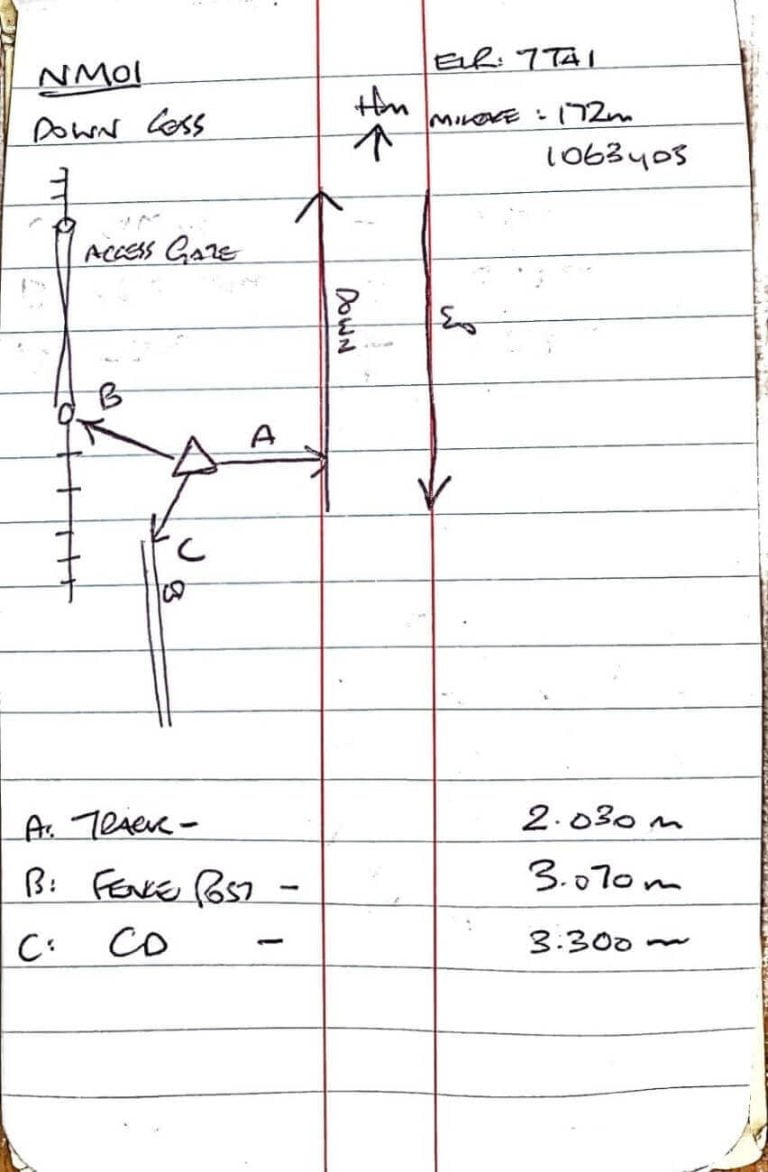 NM01
ELR: 7TA1
DOWN CESS
Hm
MILEAGE : 172m
1063yds
ACCESS GATE
DOWN
UP
B
A
C
A: TRACK - 2.030 m
B: FENCE POST - 3.070 m
C: CD - 3.300 m